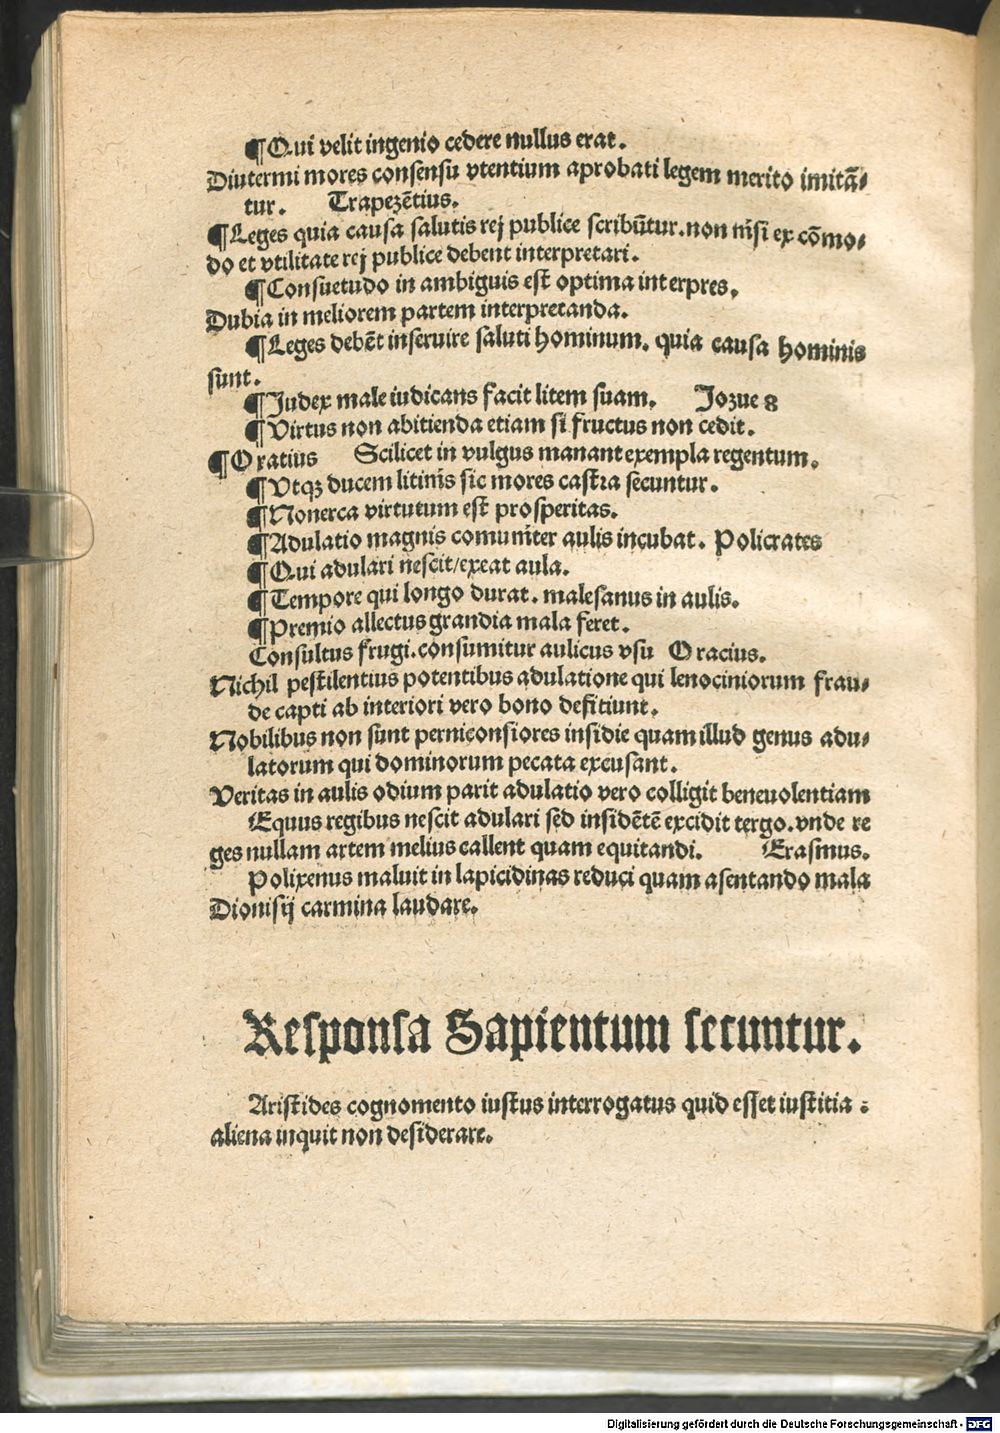 ¶Qui velit ingenio cedere nullus erat.
Diuterni mores consensu vtentium aprobati legem merito imitā⸗
tur. Trapezētius.
¶Leges quia causa salutis rej publice scribūtur. non nisi ex cōmo⸗
do et vtilitate rej publice debent interpretari.
¶Consuetudo in ambiguis est optima interpres.
Dubia in meliorem partem interpretanda.
¶Leges debēt inseruire saluti hominum. quia causa hominis
sunt.
¶Iudex male iudicans facit litem suam. Iozue 8
¶Virtus non abitienda etiam si fructus non cedit.
¶Oratius Scilicet in vulgus manant exempla regentum.
¶Vtqꝫ ducem litinis sic mores castra secuntur.
¶Nonerca virtutum est prosperitas.
¶Adulatio magnis comuniter aulis incubat. Policrates
¶Qui adulari nescit/exeat aula.
¶Tempore qui longo durat. malesanus in aulis.
¶Premio allectus grandia mala feret.
Consultus frugi. consumitur aulicus vsu Oracius.
Nichil pestilentius potentibus adulatione qui lenociniorum frau⸗
de capti ab interiori vero bono defitiunt.
Nobilibus non sunt perniconsiores insidie quam illud genus adu⸗
latorum qui dominorum pecata excusant.
Veritas in aulis odium parit adulatio vero colligit beneuolentiam
Equus regibus nescit adulari sed insidētē excidit tergo. vnde re
ges nullam artem melius callent quam equitandi. Erasmus.
Polixenus maluit in lapicidinas reduci quam asentando mala
Dionisij carmina laudare.
Responsa Sapientum secuntur.
Aristides cognomento iustus interrogatus quid esset iustitia :
aliena inquit non desiderare.
Digitalisierung gefördert durch die Deutsche Forschungsgemeinschaft - DFG